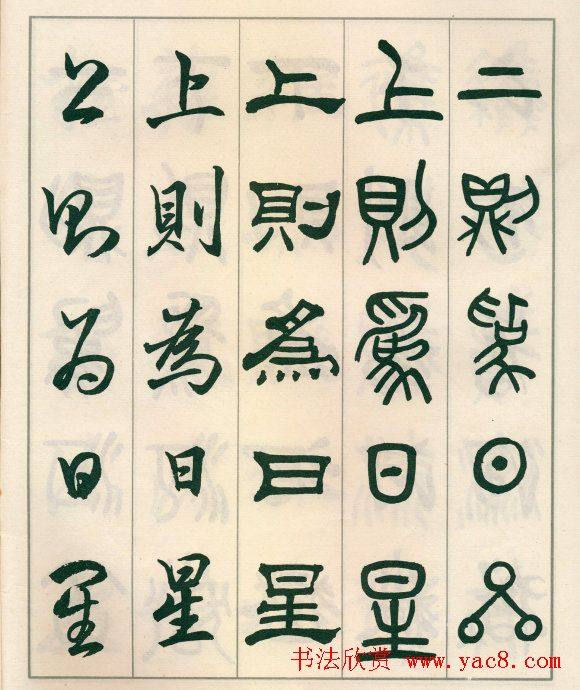 上則為日星
上則為日星
上則為日星
上則為日星
上則為日星
书法欣赏 www.yac8.com